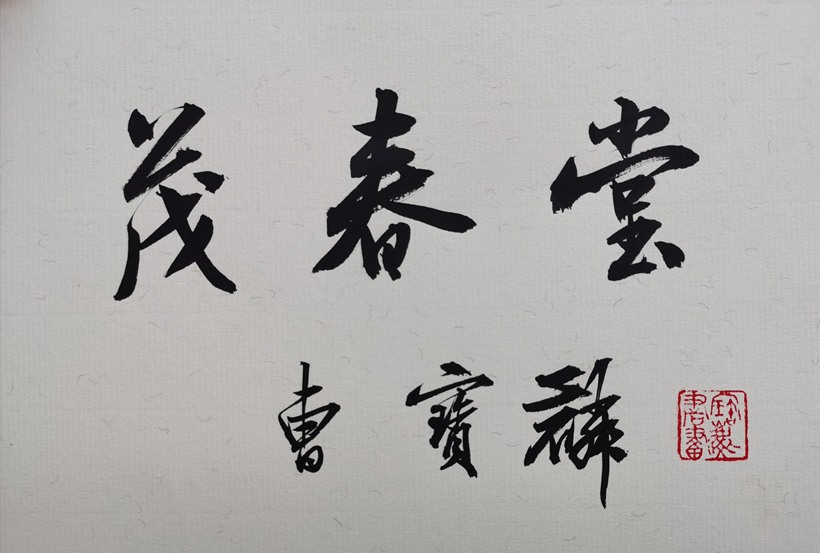 茂春堂
曹寶麟